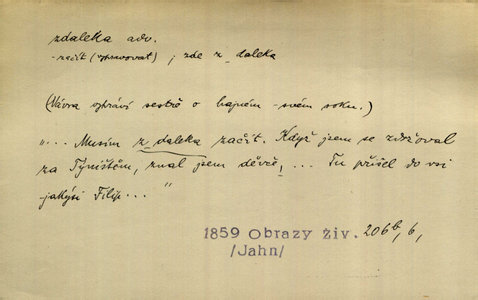 zdaleka adv.
-začít (vypravovat) ; zde z daleka
(Vávra vypráví sestře o hajném - svém soku.)
"... Musím z daleka začít. Když jsem se zdržoval
za Týništěm, znal jsem děvče, ... Tu přišel do vsi
jakýsi Filip... "
1859 Obrazy živ. 206b, 6,
/Jahn/